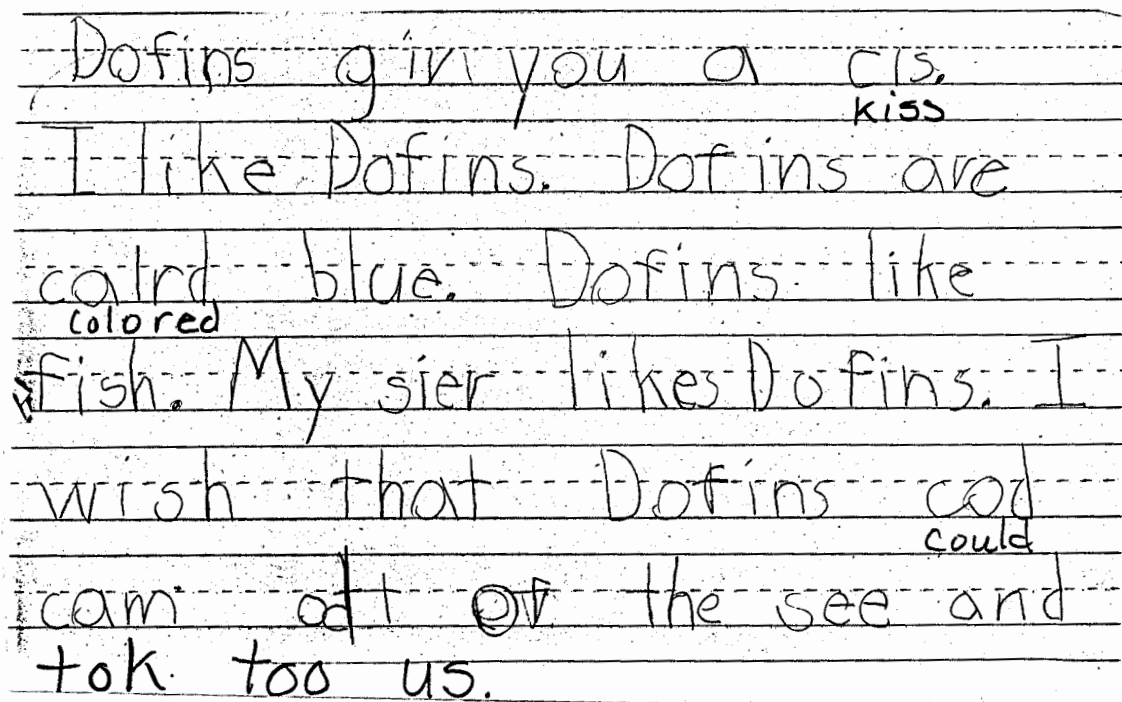 Dofins givi you a cis.
kiss
I like Dofins. Dofins are
calrd blue. Dofins like
colored
fish. My sier likes Dofins. I
wish that Dofins cod
could
cam odt of the see and
tok too us.